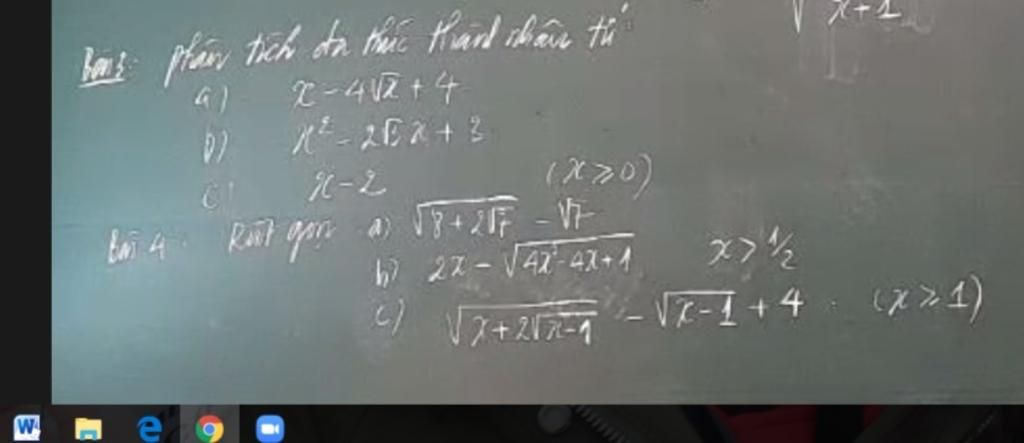 √x+1
Bài 3: phân tích đa thức thành nhân tử
a) x - 4√x + 4
b) x² - 2√3x + 3
c) x - 2 (x ≥ 0)
Bài 4: Rút gọn a) √8+2√7 - √7
b) 2x - √4x²-4x+1 x > 1/2
c) √x+2√x-1 - √x-1 + 4 . (x ≥ 1)